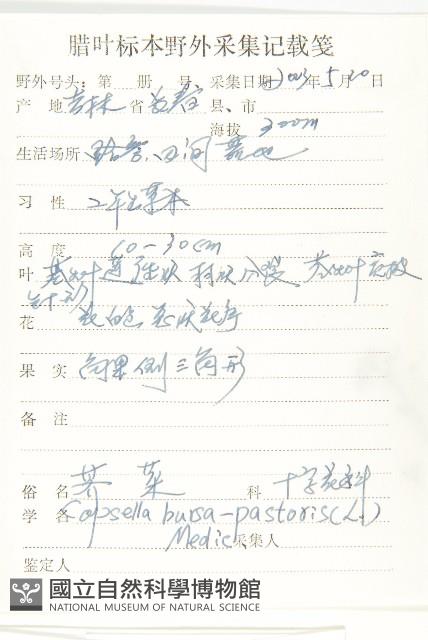 腊叶标本野外采集记载笺
野外号头：第 册 号 采集日期 2003年5月20日
产 地 吉林 省 长春 县、市
海拔 200m
生活场所 路旁、田间
习 性 2年生草本
高 度 10-30cm
叶 基生叶莲座状 羽状分裂
花 花白色 总状花序
果 实 角果倒三角形
备 注
俗 名 荠菜 科 十字花科
学 名 Capsella bursa-pastoris (L.)
Medic 采集人
鉴定人
國立自然科學博物館
NATIONAL MUSEUM OF NATURAL SCIENCE